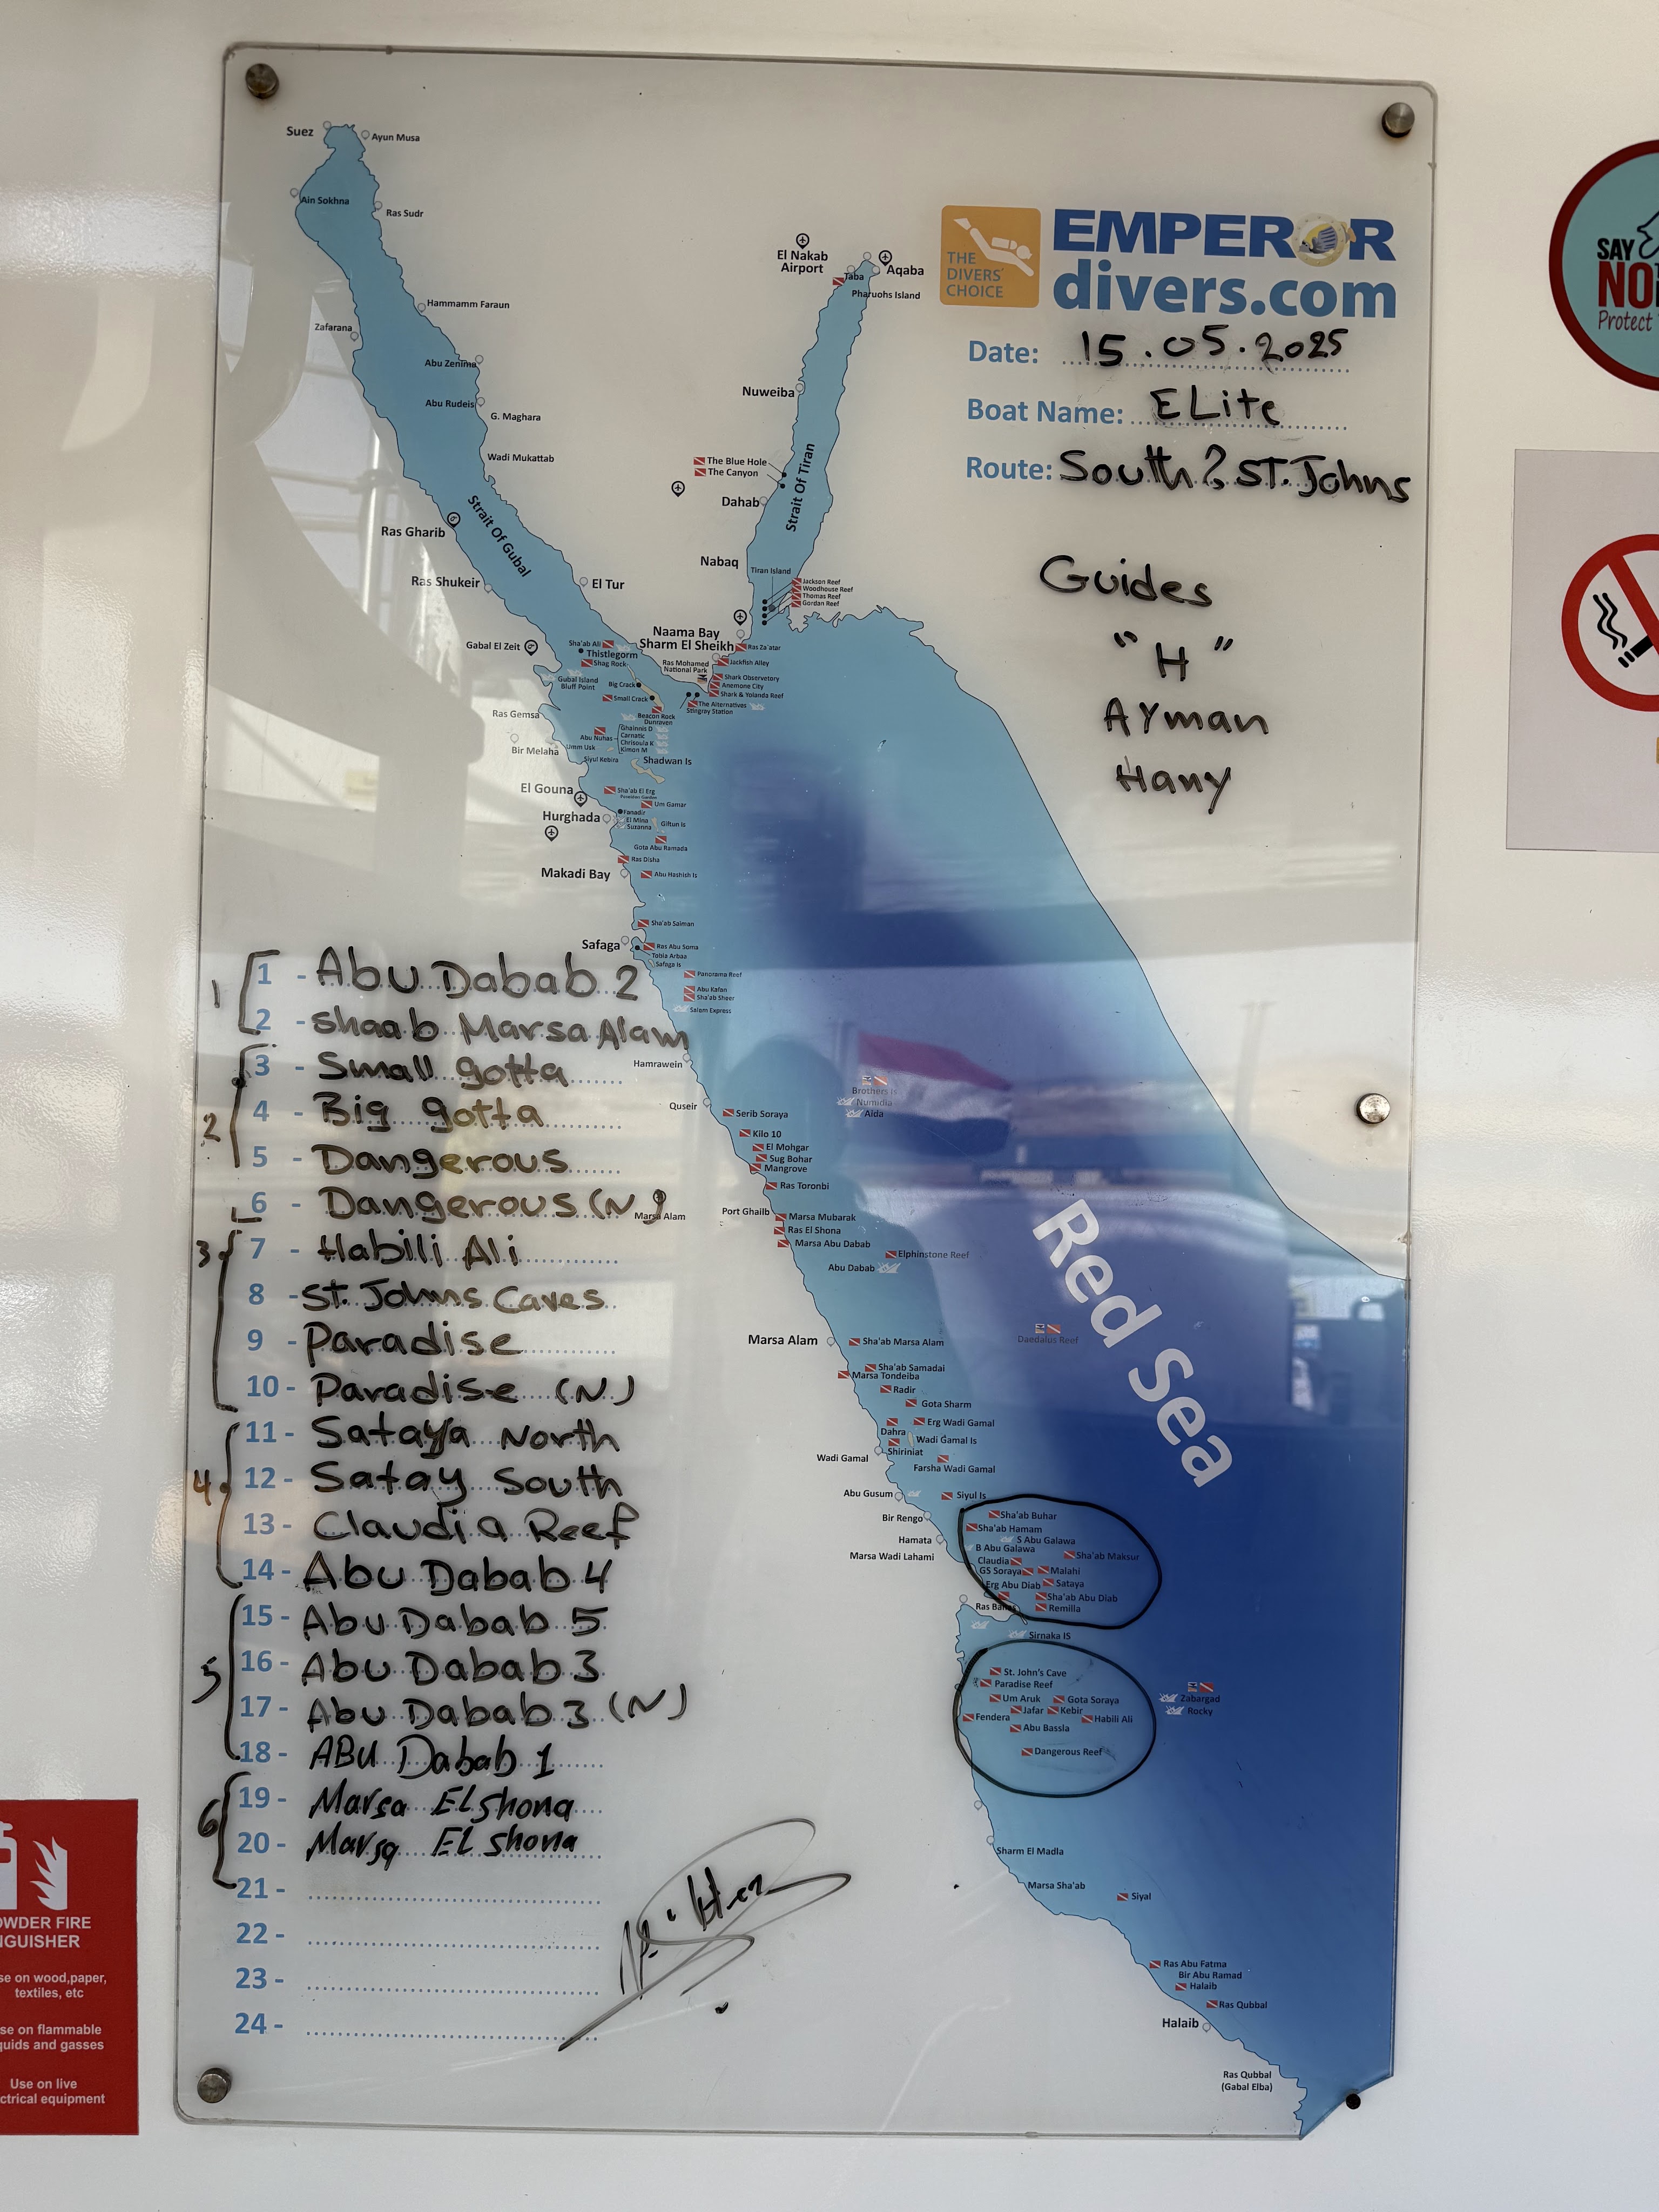 Suez
Ayun Musa
Ain Sokhna
Ras Sudr
Hammamm Faraun
Zafarana
Abu Zenima
Abu Rudeis
G. Maghara
Wadi Mukattab
Strait Of Gubal
Ras Gharib
Ras Shukeir
El Tur
Gabal El Zeit
El Nakab
Airport
Taba
Aqaba
Pharuohs Island
Nuweiba
Strait Of Tiran
The Blue Hole
The Canyon
Dahab
Nabaq
Tiran Island
Jackson Reef
Woodhouse Reef
Thomas Reef
Gordan Reef
Naama Bay
Sharm El Sheikh
Ras Za'atar
Ras Mohamed
National Park
Jackfish Alley
Shark Observetory
Anemone City
Shark & Yolanda Reef
The Alternatives
Stingray Station
Sha'ab Ali
Thistlegorm
Shag Rock
Gubal Island
Bluff Point
Big Crack
Small Crack
Beacon Rock
Dunraven
Ras Gemsa
Abu Nuhas
Ghainnis D
Carnatic
Chrisoula K
Kimon M
Bir Melaha
Umm Usk
Siyul Kebira
Shadwan Is
El Gouna
Sha'ab El Erg
Um Gamar
Hurghada
Fanadir
El Mina
Suzanna
Giftun Is
Gota Abu Ramada
Ras Disha
Makadi Bay
Abu Hashish Is
Sha'ab Saiman
Safaga
Ras Abu Soma
Tobia Arbaa
Safaga Is
Panorama Reef
Abu Kafan
Sha'ab Sheer
Salem Express
Hamrawein
Quseir
Brothers Is
Numidia
Aida
Serib Soraya
Kilo 10
El Mohgar
Sug Bohar
Mangrove
Ras Toronbi
Port Ghailb
Marsa Mubarak
Ras El Shona
Marsa Abu Dabab
Marsa Alam
Elphinstone Reef
Abu Dabab
Red Sea
Daedalus Reef
Marsa Alam
Sha'ab Marsa Alam
Sha'ab Samadai
Marsa Tondeiba
Radir
Gota Sharm
Erg Wadi Gamal
Dahra
Wadi Gamal Is
Shiriniat
Wadi Gamal
Farsha Wadi Gamal
Abu Gusum
Siyul Is
Bir Rengo
Sha'ab Buhar
Sha'ab Hamam
Hamata
S Abu Galawa
B Abu Galawa
Marsa Wadi Lahami
Sha'ab Maksur
Claudia
GS Soraya
Malahi
Erg Abu Diab
Sataya
Sha'ab Abu Diab
Ras Banas
Remilla
Sirnaka IS
St. John's Cave
Paradise Reef
Um Aruk
Gota Soraya
Jafar
Kebir
Fendera
Habili Ali
Abu Bassla
Dangerous Reef
Zabargad
Rocky
Sharm El Madla
Marsa Sha'ab
Siyal
Ras Abu Fatma
Bir Abu Ramad
Halaib
Ras Qubbal
Halaib
Ras Qubbal
(Gabal Elba)
THE
DIVERS'
CHOICE
EMPEROR
divers.com
Date: 15.05.2025
Boat Name: ELite
Route: South & ST. Johns
Guides
"H"
AYman
Hany
1
1 - Abu Dabab 2
2 - Shaab Marsa Alam
2
3 - Small gotta
4 - Big gotta
5 - Dangerous
6 - Dangerous (N)
3
7 - Habili Ali
8 - St. Johns Caves
9 - Paradise
10 - Paradise (N)
4
11 - Sataya North
12 - Satay South
13 - Claudia Reef
14 - Abu Dabab 4
5
15 - Abu Dabab 5
16 - Abu Dabab 3
17 - Abu Dabab 3 (N)
18 - ABU Dabab 1
6
19 - Marsa El Shona
20 - Marsa El shona
21 -
22 -
23 -
24 -
SAY
NO
Protect
OWDER FIRE
NGUISHER
se on wood,paper,
textiles, etc
se on flammable
quids and gasses
Use on live
ctrical equipment